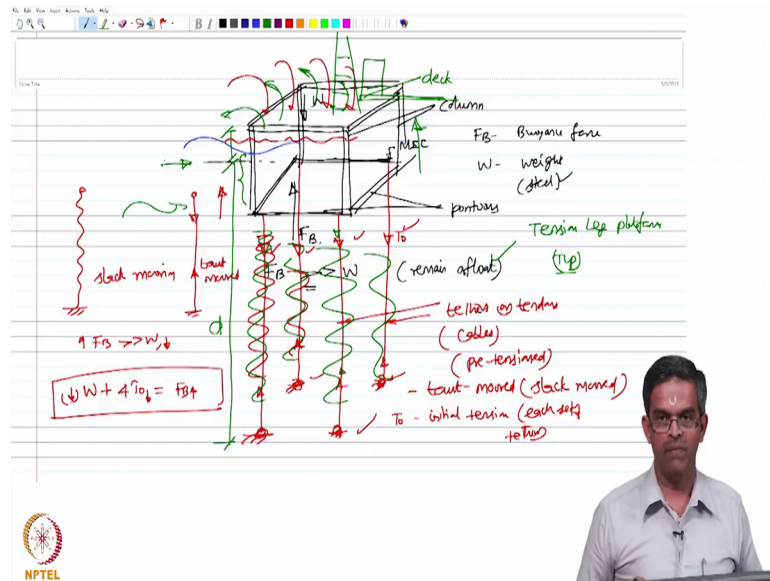 File Edit View Insert Actions Tools Help
B I
deck
column
W
MSL
F_B - Buoyant force
W - weight
(steel)
pontoons
F_B
T_0
Tension Leg platform
(TLP)
slack mooring
taut moored
F_B >> W
(remain afloat)
d
tethers or tendons
(cables)
(pre-tensioned)
- taut-moored (slack moored)
T_0 - initial tension (each set of
F_B >> W
W + 4T_0 = F_B
NPTEL